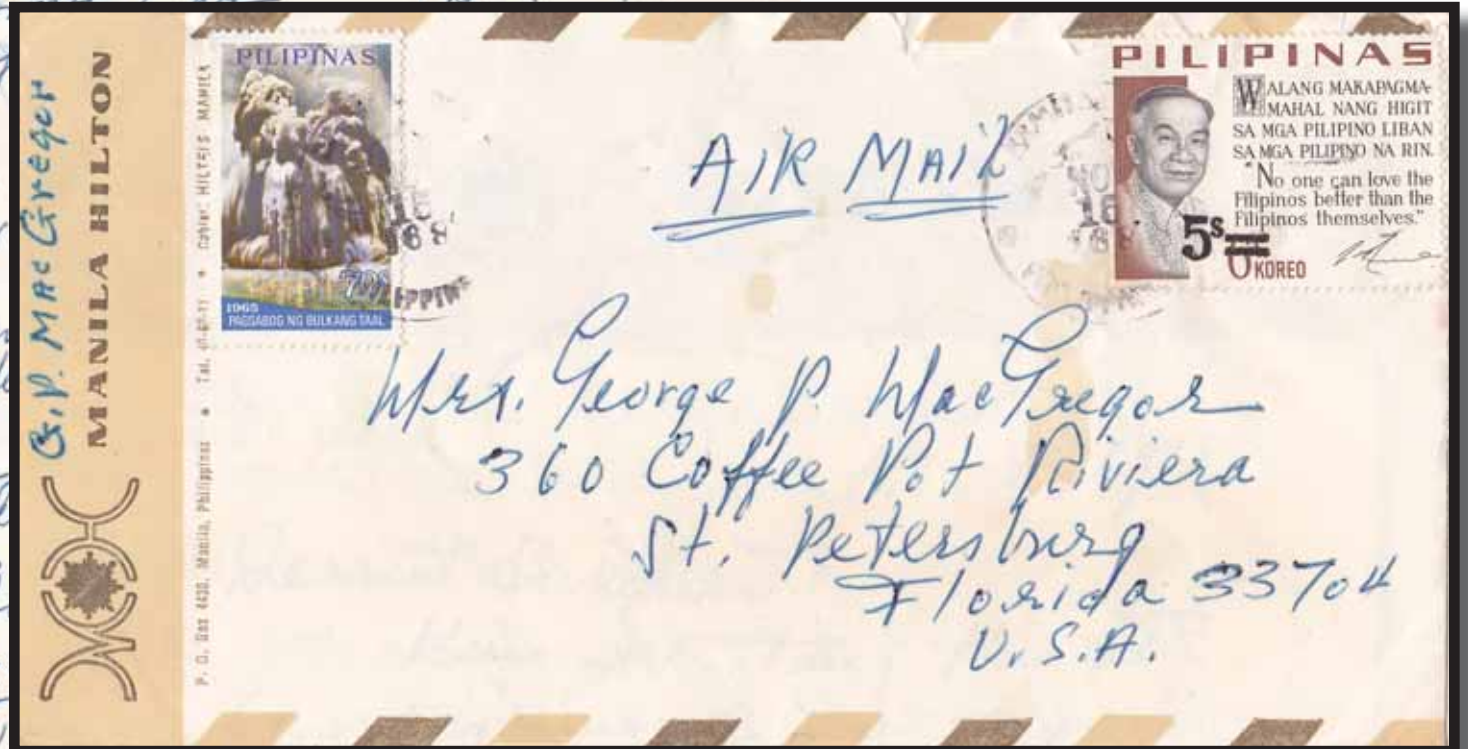 G.P. MacGregor
MANILA HILTON
P. O. Box Manila, Philippines • Tel. • Cable: HILTELS MANILA
PILIPINAS
70s
1965
PAGSABOG NG BULKANG TAAL
PILIPINAS
WALANG MAKAPAGMA-
MAHAL NANG HIGIT
SA MGA PILIPINO LIBAN
SA MGA PILIPINO NA RIN.
"No one can love the
Filipinos better than the
Filipinos themselves."
5s
6 KOREO
AIR MAIL
Mrs. George P. MacGregor
360 Coffee Pot Riviera
St. Petersburg
Florida 33704
U.S.A.